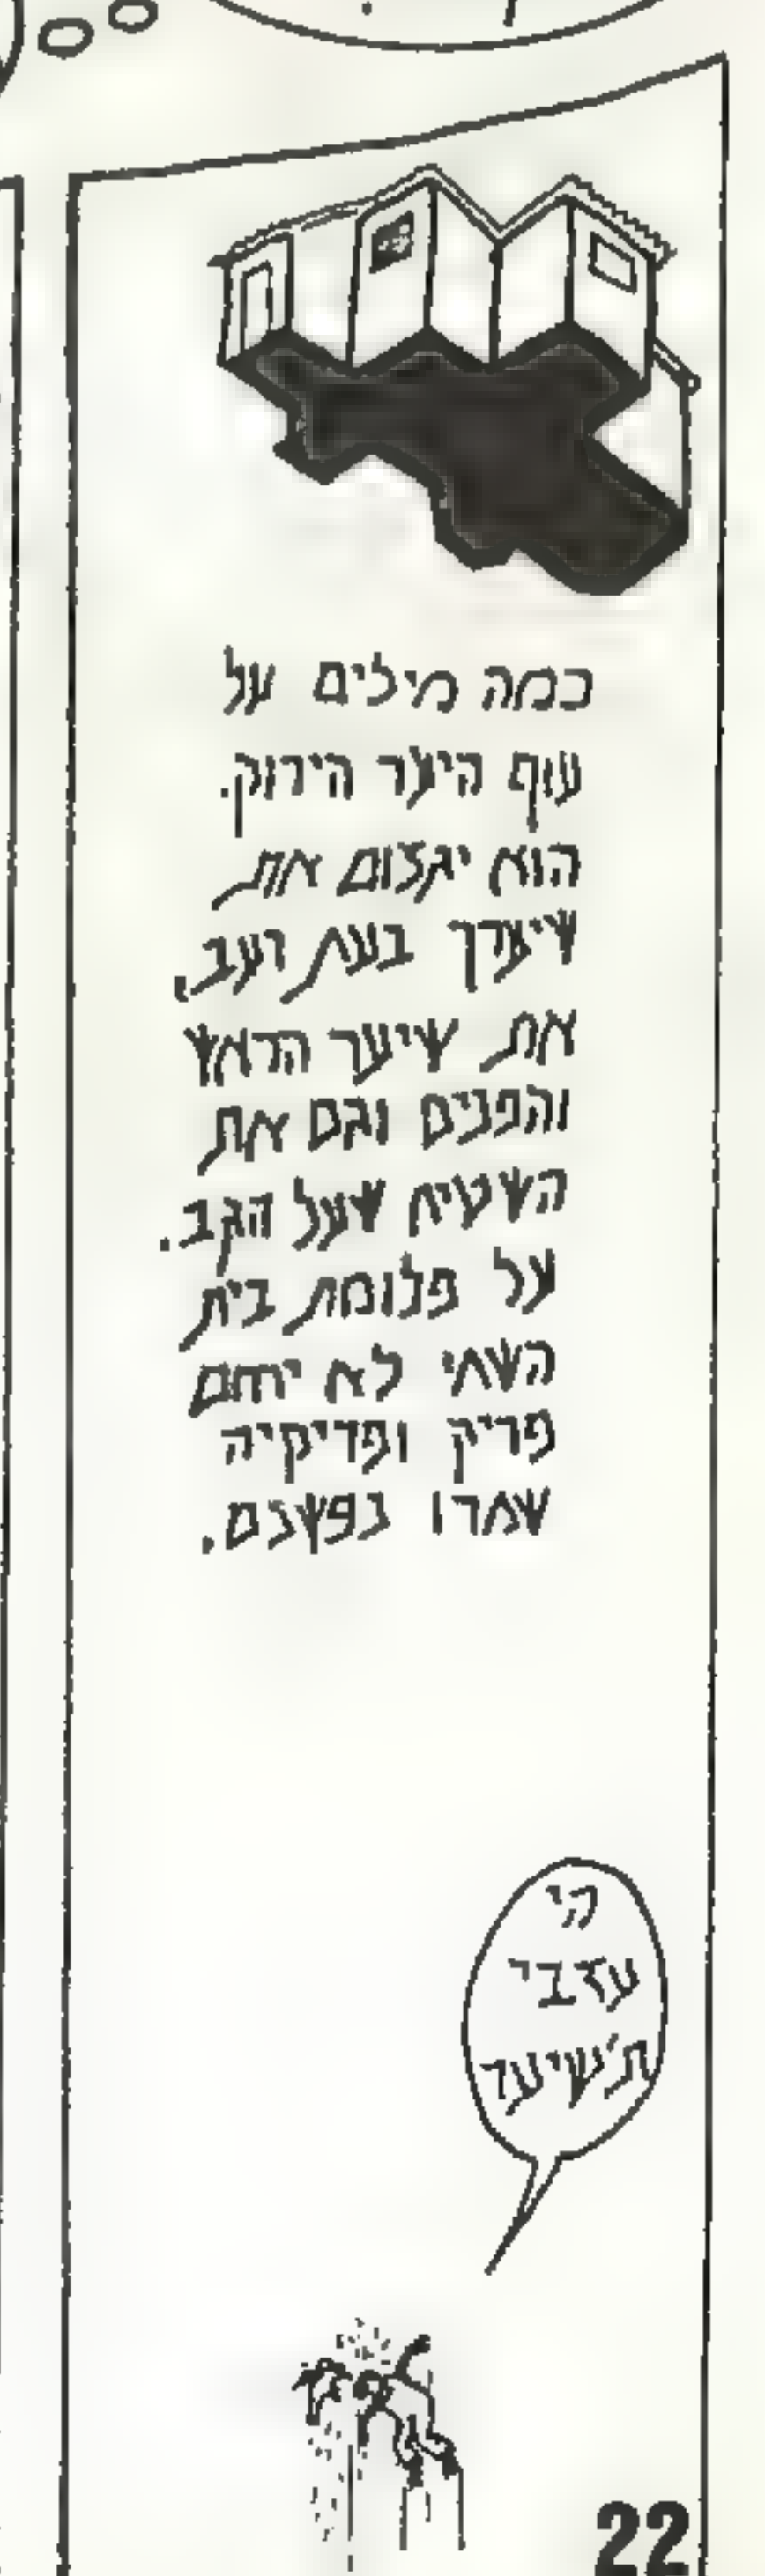 כמה מילים על
עוף היער הירוק.
הוא יגצום את
שיערך בעת רעב,
את שיער הראש
והפנים וגם את
השטיח שעל הגב.
על פלומת בית
השחי לא יחם
פריק ופדיקיה
שמרו בפשכם.
הי
עזבי
ת'שיער
22